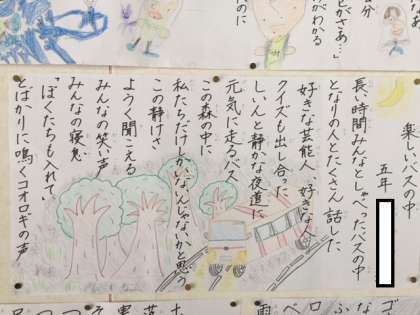 楽しいバスの中
五年
長い時間みんなとしゃべったバスの中
となりの人とたくさん話した
好きな芸能人、好きな人
クイズも出し合った
しぃんと静かな夜道に
元気に走るバス
この森の中に
私たちだけしかいないんじゃないかと思う
この静けさ
ようく聞こえる
みんなの笑い声
みんなの寝息
「ぼくたちも入れて」
とばかりに鳴くコオロギの声